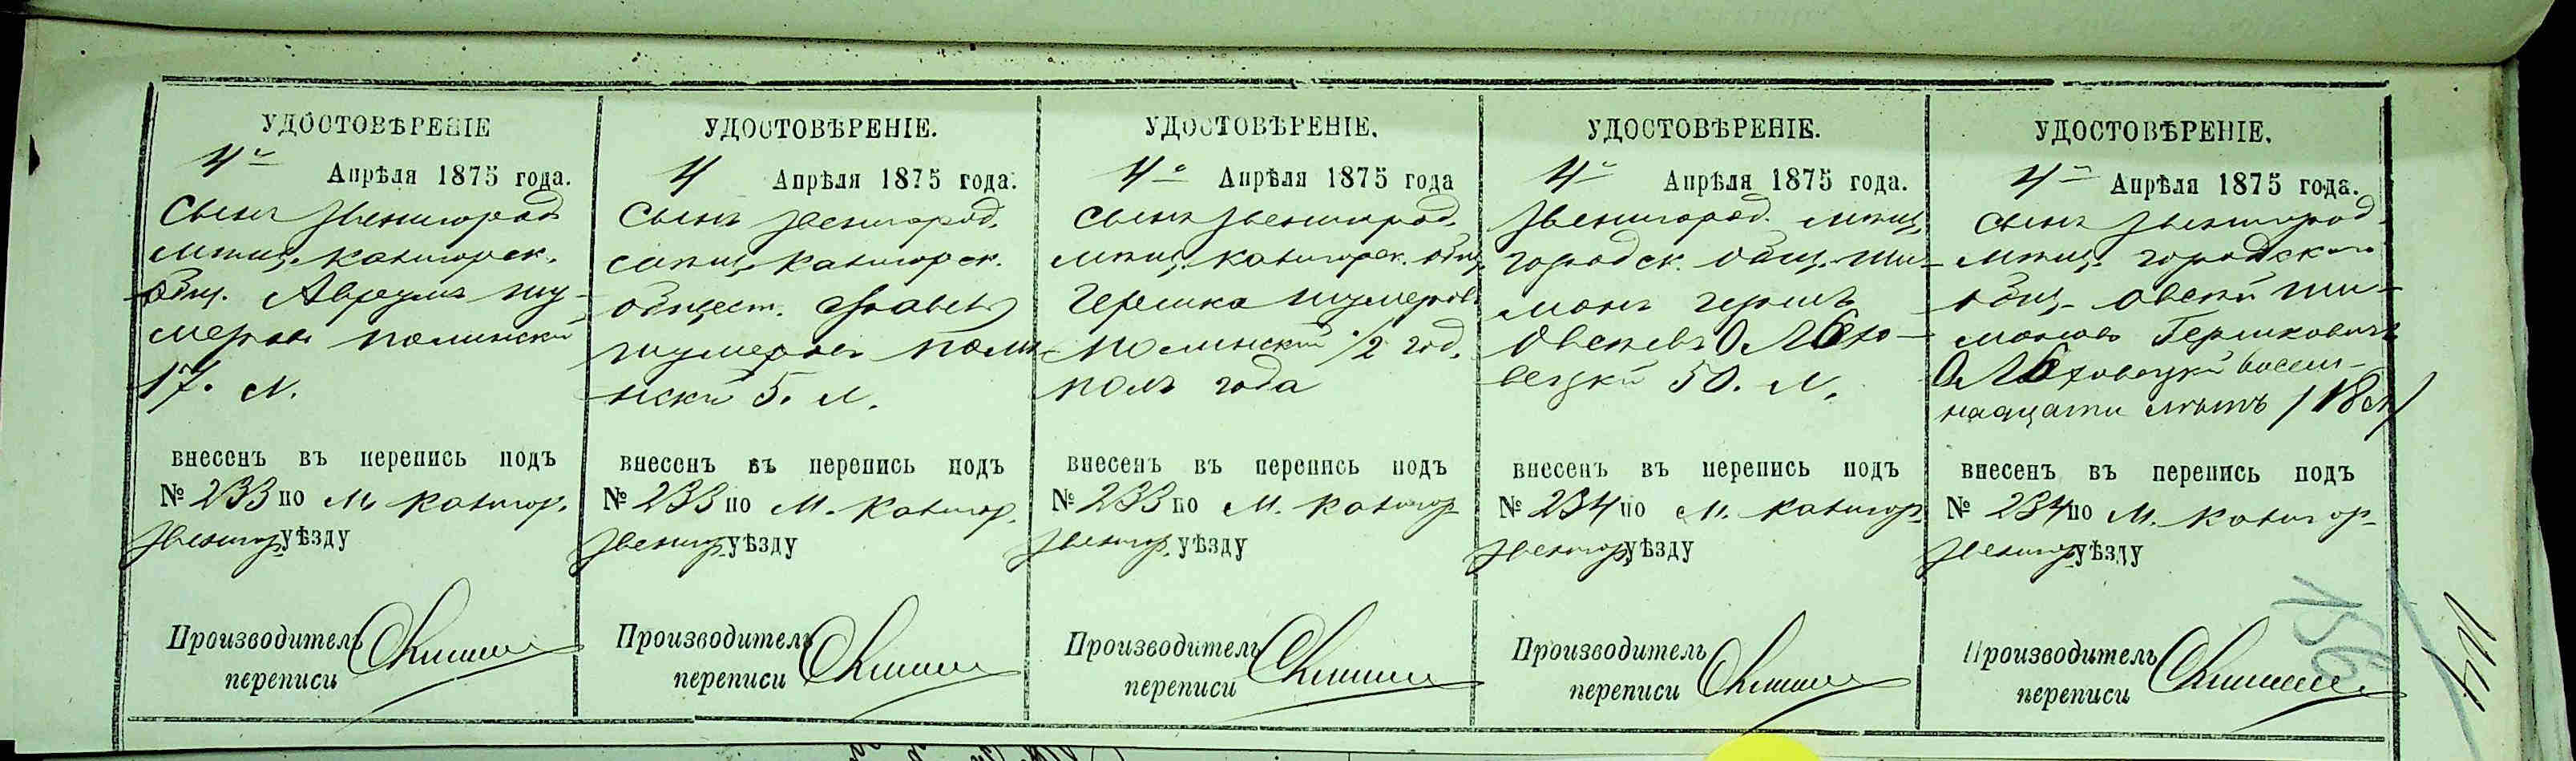 УДОСТОВѢРЕНІЕ
4 Апрѣля 1875 года.
Сынъ Звенигород
мѣщ. Катигорск.
общ. Авреумъ Шу-
меровъ Полински
17. л.
внесенъ въ перепись подъ
№ 233 по М. Катигор.
Звенигор. уѣзду
Производитель
переписи
УДОСТОВѢРЕНІЕ.
4 Апрѣля 1875 года.
Сынъ Звенигород.
мѣщ. Катигорск.
общест.
Шумеровъ Полин-
ски 5. л.
внесенъ въ перепись подъ
№ 233 по М. Катигор.
Звенигор. уѣзду
Производитель
переписи
УДОСТОВѢРЕНІЕ.
4 Апрѣля 1875 года
Сынъ Звенигород.
мѣщ. Катигорск. общ.
Гершко Шумеровъ
Полински 1/2 год.
полъ года
внесенъ въ перепись подъ
№ 233 по М. Катигор
Звенигор. уѣзду
Производитель
переписи
УДОСТОВѢРЕНІЕ.
4 Апрѣля 1875 года.
Звенигород. мѣщ.
городск. общ. Ши-
монъ Гершъ
50. л.
внесенъ въ перепись подъ
№ 234 по М. Катигор.
Звенигор. уѣзду
Производитель
переписи
УДОСТОВѢРЕНІЕ.
4 Апрѣля 1875 года.
Сынъ Звенигород.
мѣщ. городского
общ. Овсей Ши-
моновъ Гершковичъ
восем-
надцати лѣтъ /18 л/
внесенъ въ перепись подъ
№ 234 по М. Катигор
Звенигор. уѣзду
Производитель
переписи
156